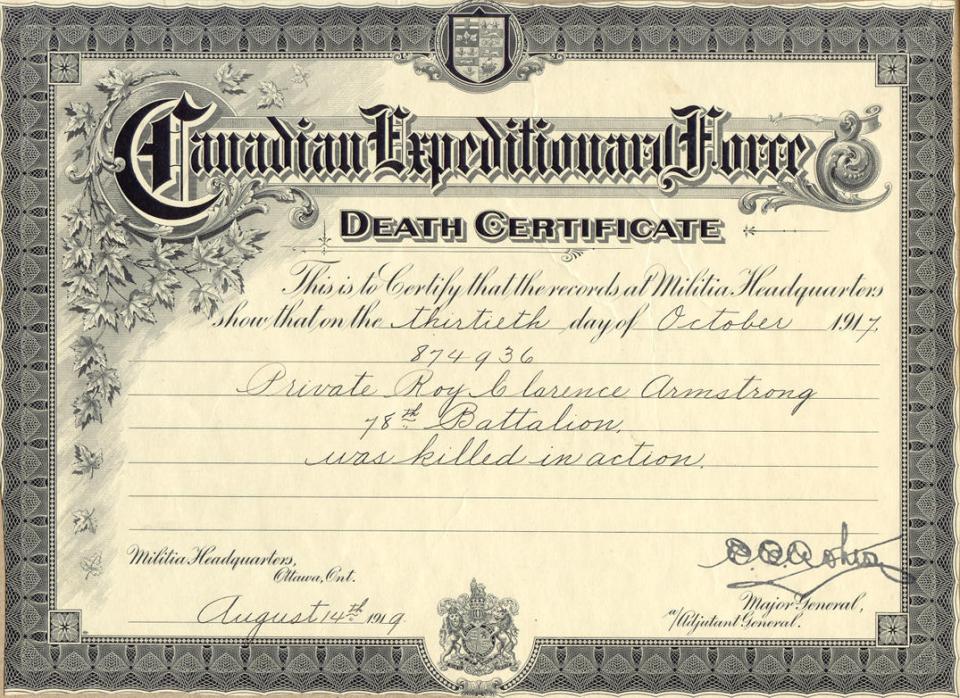 Canadian Expeditionary Force
DEATH CERTIFICATE
This is to Certify that the records at Militia Headquarters
show that on the thirtieth day of October 1917.
874936
Private Roy Clarence Armstrong
78th Battalion.
was killed in action.
Militia Headquarters,
Ottawa, Ont.
August 14th 1919
Major General,
a/Adjutant General.